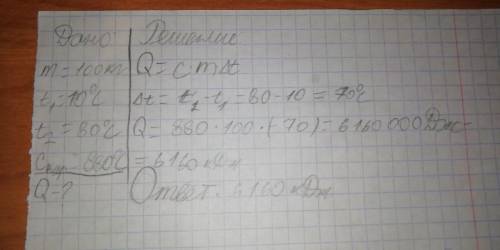 Дано:
m=100кг
t₁=10°C
t₂=80°C
Cкир=880°C
Q=?
Решение
Q=cmΔt
Δt=t₂-t₁=80-10=70°C
Q=880·100·(70)=6160000Дж=
=6160кДж
Ответ: 6160кДж